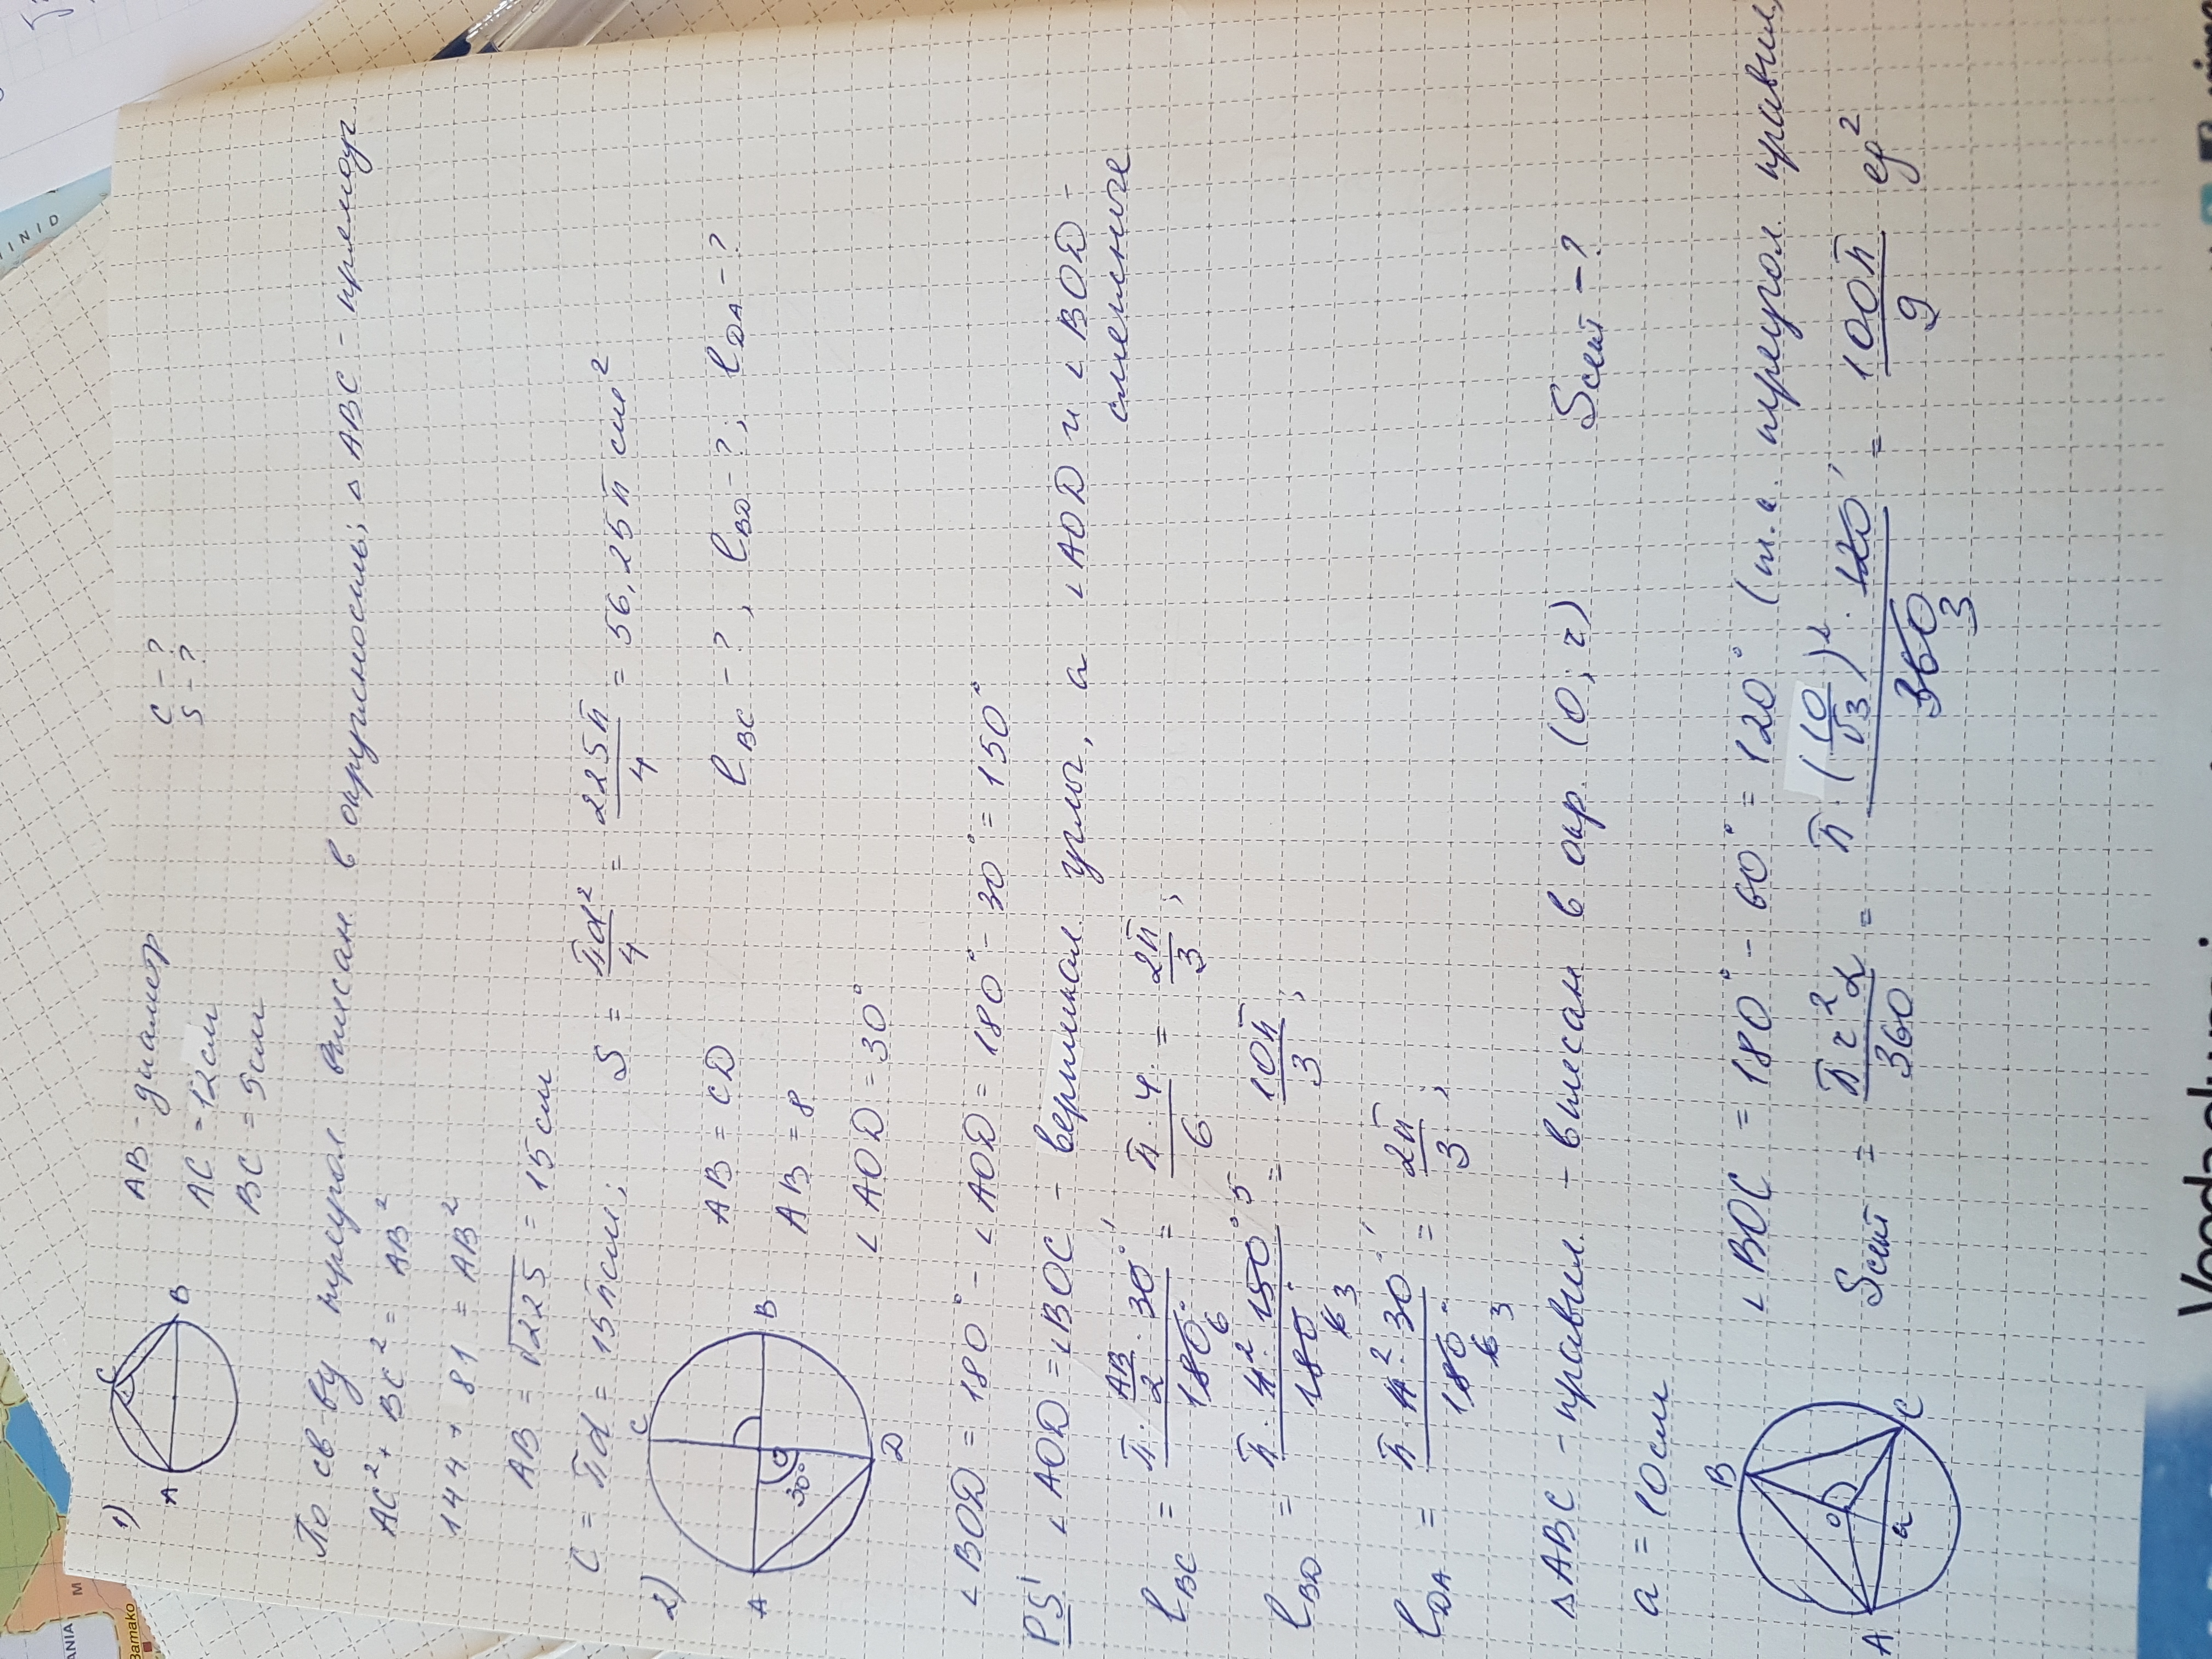 1) AB - диаметр C - ?
AC = 12см S - ?
BC = 5см
A C B
По св ву треугол вписан в окружность, △ABC - прямоуг
AC² + BC² = AB²
144 + 81 = AB²
AB = √225 = 15см
C = πd = 15πсм; S = πd²/4 = 225π/4 = 56,25π см²
2) AB = CD l BC - ?, l BD - ?; l DA - ?
AB = 8
∠AOD = 30°
A C B D O 30°
∠BOD = 180° - ∠AOD = 180° - 30° = 150°
PS! ∠AOD = ∠BOC - вертикал углы, а ∠AOD и ∠BOD - смежные
l BC = π · AB/2 · 30° / 180° 6 = π · 4 / 6 = 2π/3;
l BD = π · 4² · 150° 5 / 180 6 3 = 10π/3;
l DA = π · 4² · 30° / 180° 6 3 = 2π/3;
△ABC - правил. - вписан в окр. (O; r) Sсект - ?
a = 10см
A B C O a
∠BOC = 180° - 60° = 120° (т.к. треугол. правил)
Sсект = πr²α/360 = π · (10/√3)² · 120 / 360 3 = 100π/9 ед²
INID
M
ANIA
Bamako